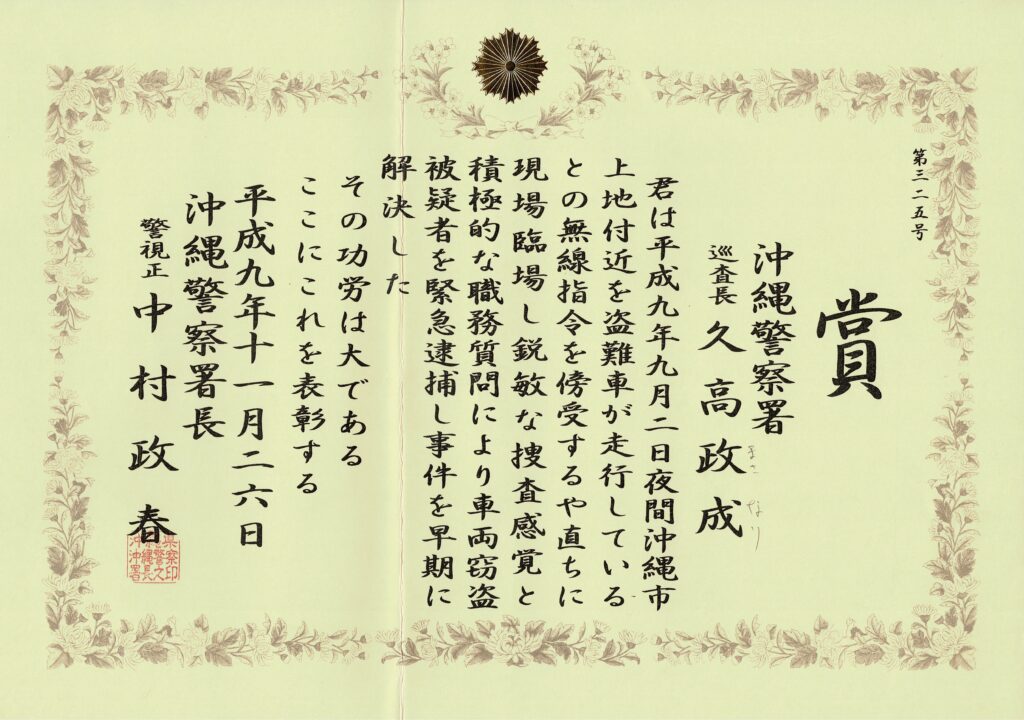 第三二五号
賞
沖縄警察署
巡査長 久高政成
まさ なり
君は平成九年九月二日夜間沖縄市
上地付近を盗難車が走行している
との無線指令を傍受するや直ちに
現場臨場し鋭敏な捜査感覚と
積極的な職務質問により車両窃盗
被疑者を緊急逮捕し事件を早期に
解決した
その功労は大である
ここにこれを表彰する
平成九年十一月二六日
沖縄警察署長
警視正 中村政春